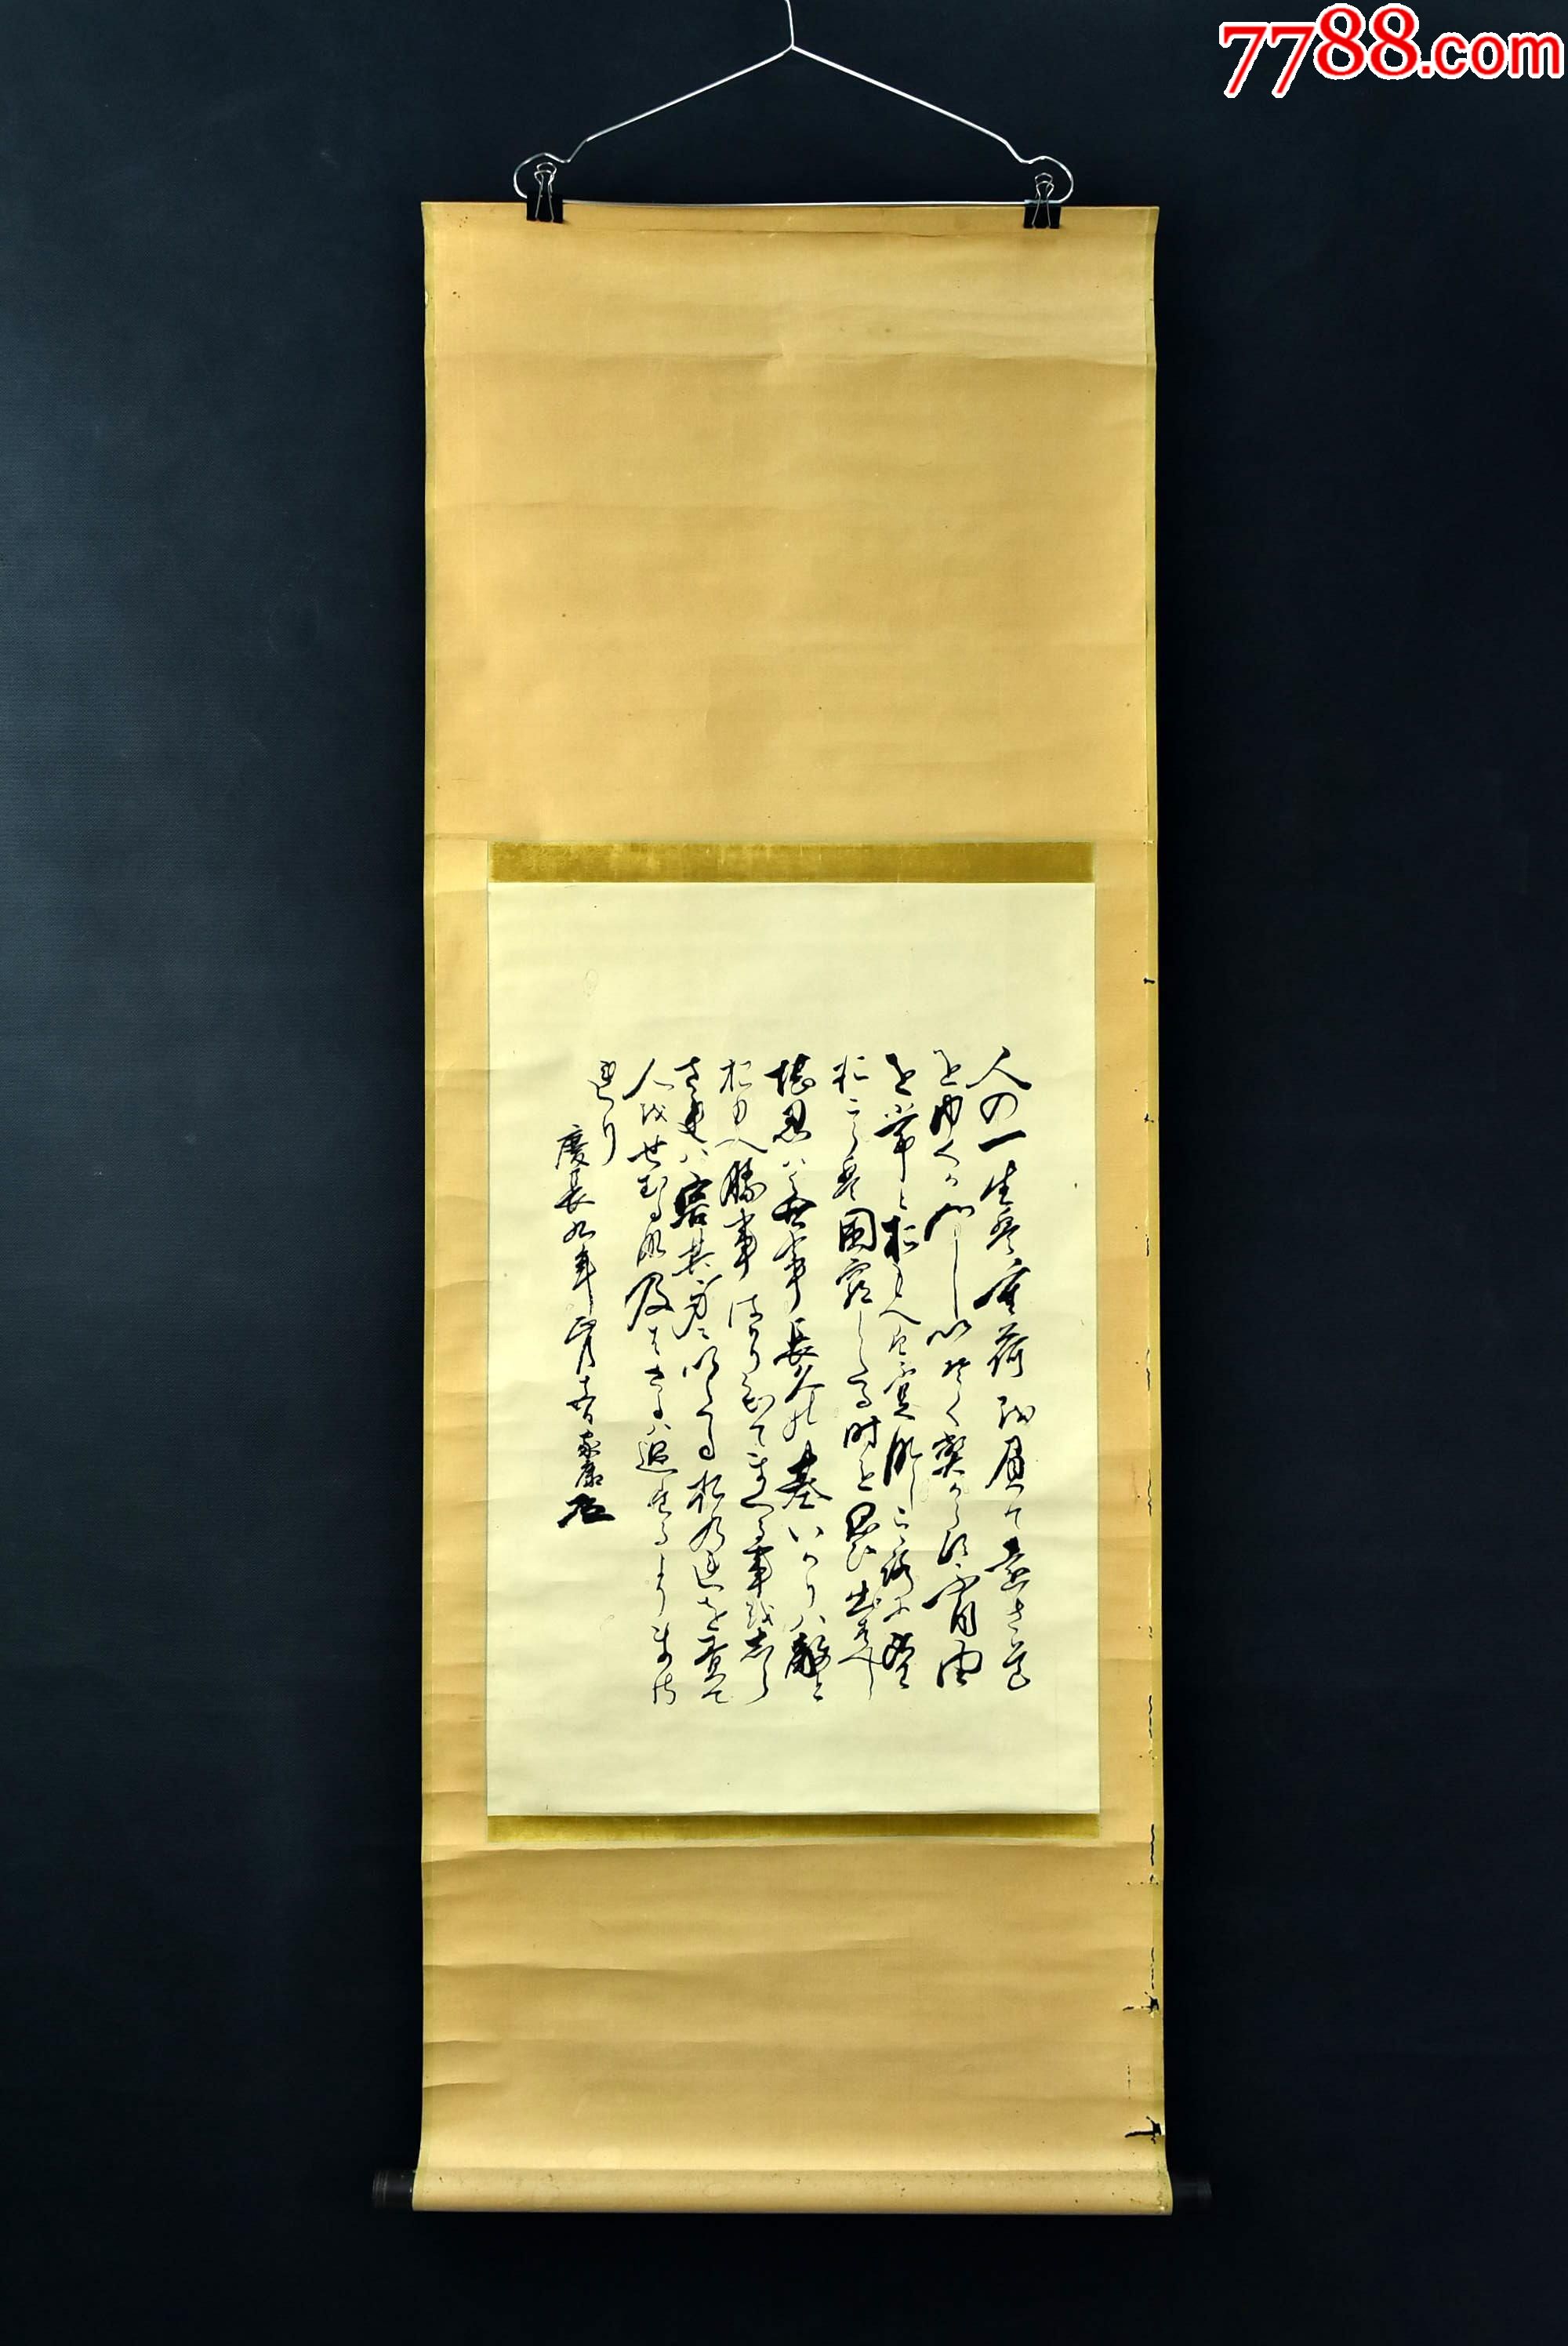 7788.com
人の一生は重荷を負て遠き道
をゆくか如しいそくへからす不自由
を常とおもへは不足なしこころに望
おこらは困窮したる時を思ひ出すへし
堪忍は無事長久の基いかりハ敵と
おもへ勝事はかり知てまくる事をしら
されハ害其身にいたるおのれを責て
人をせむるな及はさるハ過たるよりまさ
れり
慶長九年正月 家康